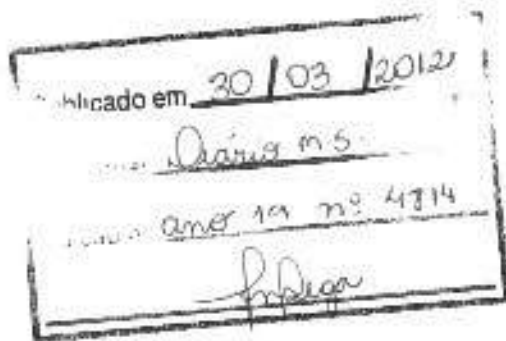 blicado em 30/03/2012
Diário MS.
ano 19 nº 4814